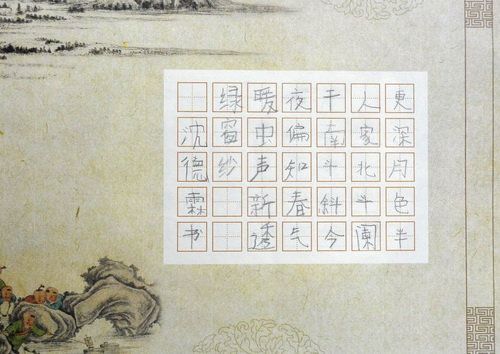 更深月色半
人家北斗阑
干南斗斜今
夜偏知春气
暖虫声新透
绿窗纱
沈德霖书